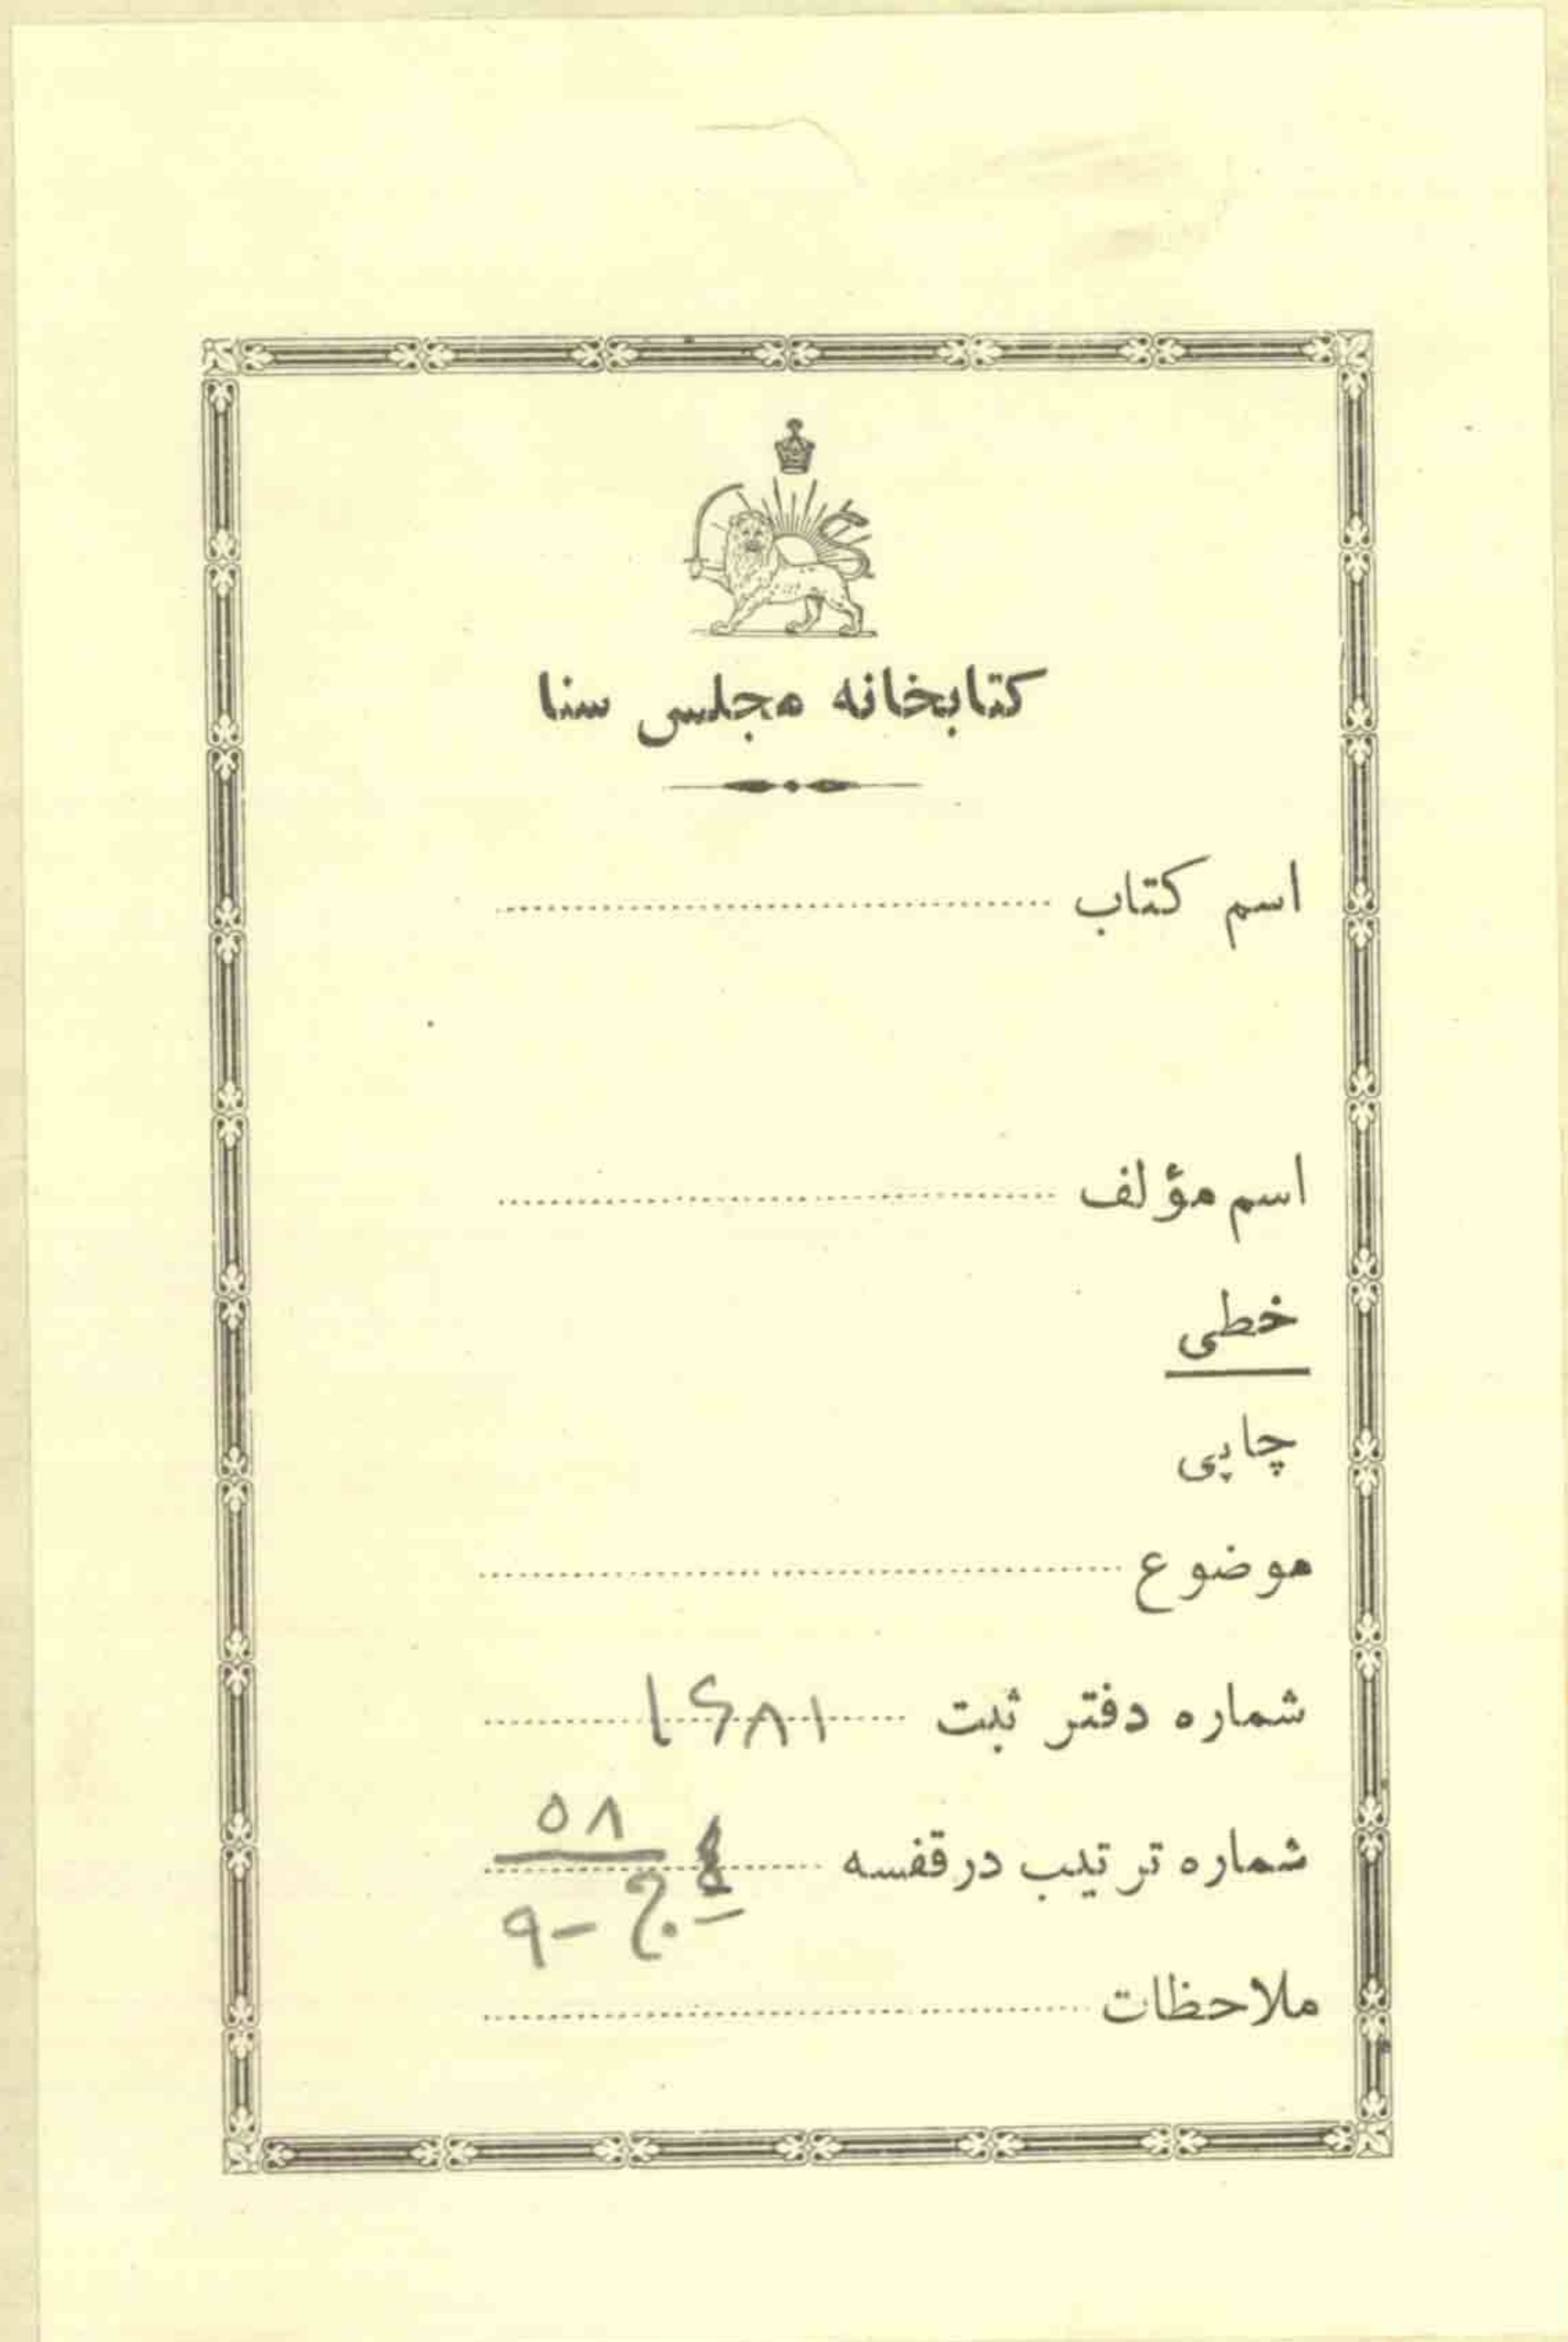 کتابخانه مجلس سنا
اسم کتاب
اسم مؤلف
خطی
چاپی
موضوع
شماره دفتر ثبت ۱۶۸۱
شماره ترتیب در قفسه ۵۸
ج - ۹
ملاحظات